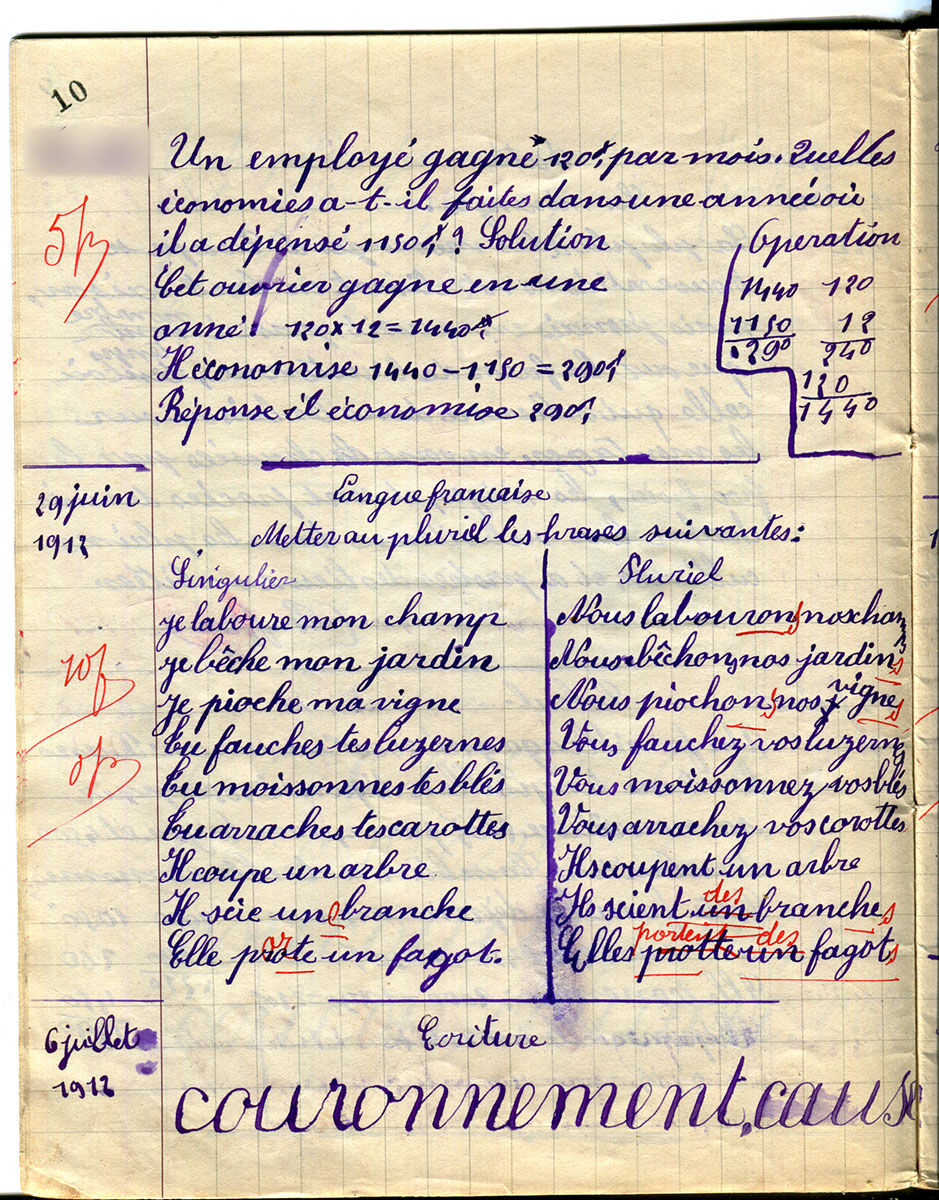 10
Un employé gagne 120f par mois. Quelles
économies a-t-il faites dans une année où
il a dépensé 1150f? Solution
Operation
Cet ouvrier gagne en une
1440 120
anné. 120x12=1440f
1150 12
290 240
Il économise 1440-1150=290f
120
1440
Réponse il économise 290f
5f
29 juin
1912
Langue francaise
Metter au pluriel les hrases suivantes:
Singulier Pluriel
je laboure mon champ Nous labourons nos cham
je bêche mon jardin Nous bêchons nos jardins
je pioche ma vigne Nous piochons nos vignes
Tu fauches tes luzernes Vous fauchez vos luzernes
Tu moissonnes tes blés Vous moissonnez vos blés
Tu arraches tes carottes Vous arrachez vos carottes
Il coupe un arbre Ils coupent un arbre
des
Il scie une branche Ils scient un branches
or portent des
Elle prote un fagot. Elles protte un fagots
10f
0f
6 juillet
1912
Ecriture
couronnement, cause